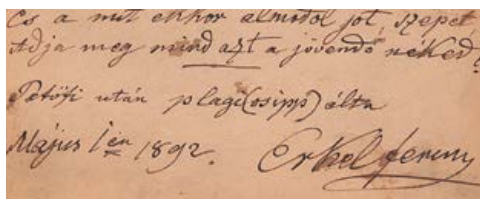 És a mit ekkor álmodol jót, szépet,
Adja meg mind azt a jövendő néked!
Petőfi után plagi(csipp)álta
Május 1én 1892. Erkel Ferencz